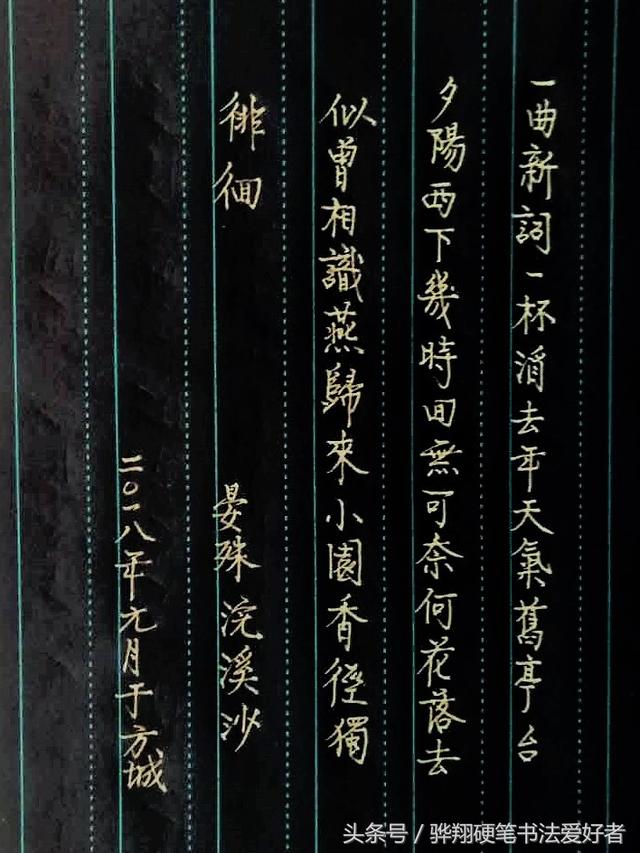 一曲新詞一杯酒去年天氣舊亭台
夕陽西下幾時回無可奈何花落去
似曾相識燕歸來小園香徑獨
徘徊 晏殊浣溪沙
二〇一八年元月于方城
头条号/骅翔硬笔书法爱好者